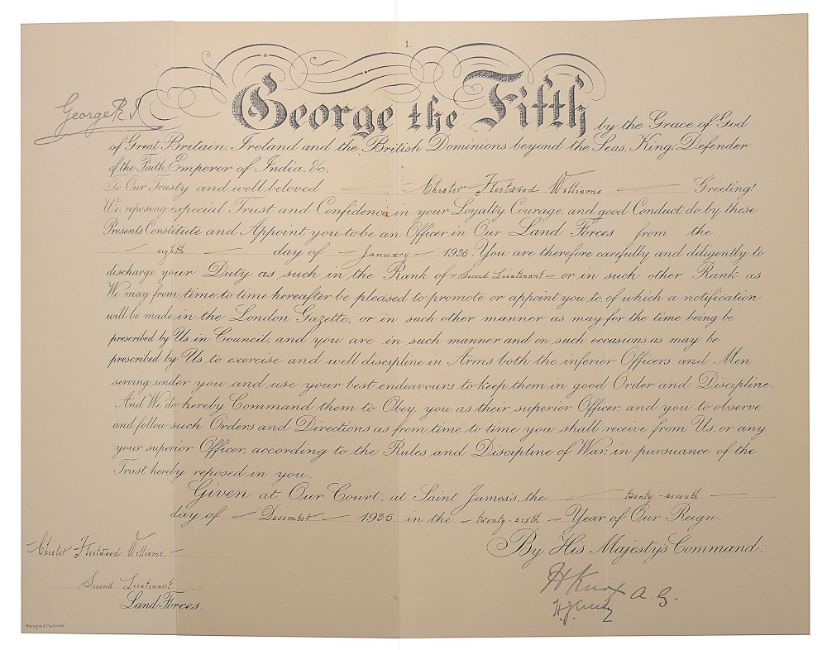 1.
George R.I.
George the Fifth by the Grace of God
of Great Britain, Ireland and the British Dominions beyond the Seas, King, Defender
of the Faith, Emperor of India, &c.
To Our Trusty and well beloved Chester Fleetwood Williams Greeting!
We reposing especial Trust and Confidence in your Loyalty Courage, and good Conduct, do by these
Presents Constitute and Appoint you to be an Officer in Our Land Forces from the
eighth day of January 1936. You are therefore carefully and diligently to
discharge your Duty as such in the Rank of Second Lieutenant or in such other Rank as
We may from time to time hereafter be pleased to promote or appoint you to, of which a notification
will be made in the London Gazette, or in such other manner as may for the time being be
prescribed by Us in Council, and you are in such manner and on such occasions as may be
prescribed by Us to exercise and well discipline in Arms both the inferior Officers and Men
serving under you and use your best endeavours to keep them in good Order and Discipline.
And We do hereby Command them to Obey you as their superior Officer, and you to observe
and follow such Orders and Directions as from time to time you shall receive from Us, or any
your superior Officer, according to the Rules and Discipline of War; in pursuance of the
Trust hereby reposed in you.
Given at Our Court, at Saint James's, the twenty-seventh
day of December 1935 in the twenty-sixth Year of Our Reign.
By His Majesty's Command.
Chester Fleetwood Williams.
Second Lieutenant
Land Forces.
H Knox A.G.